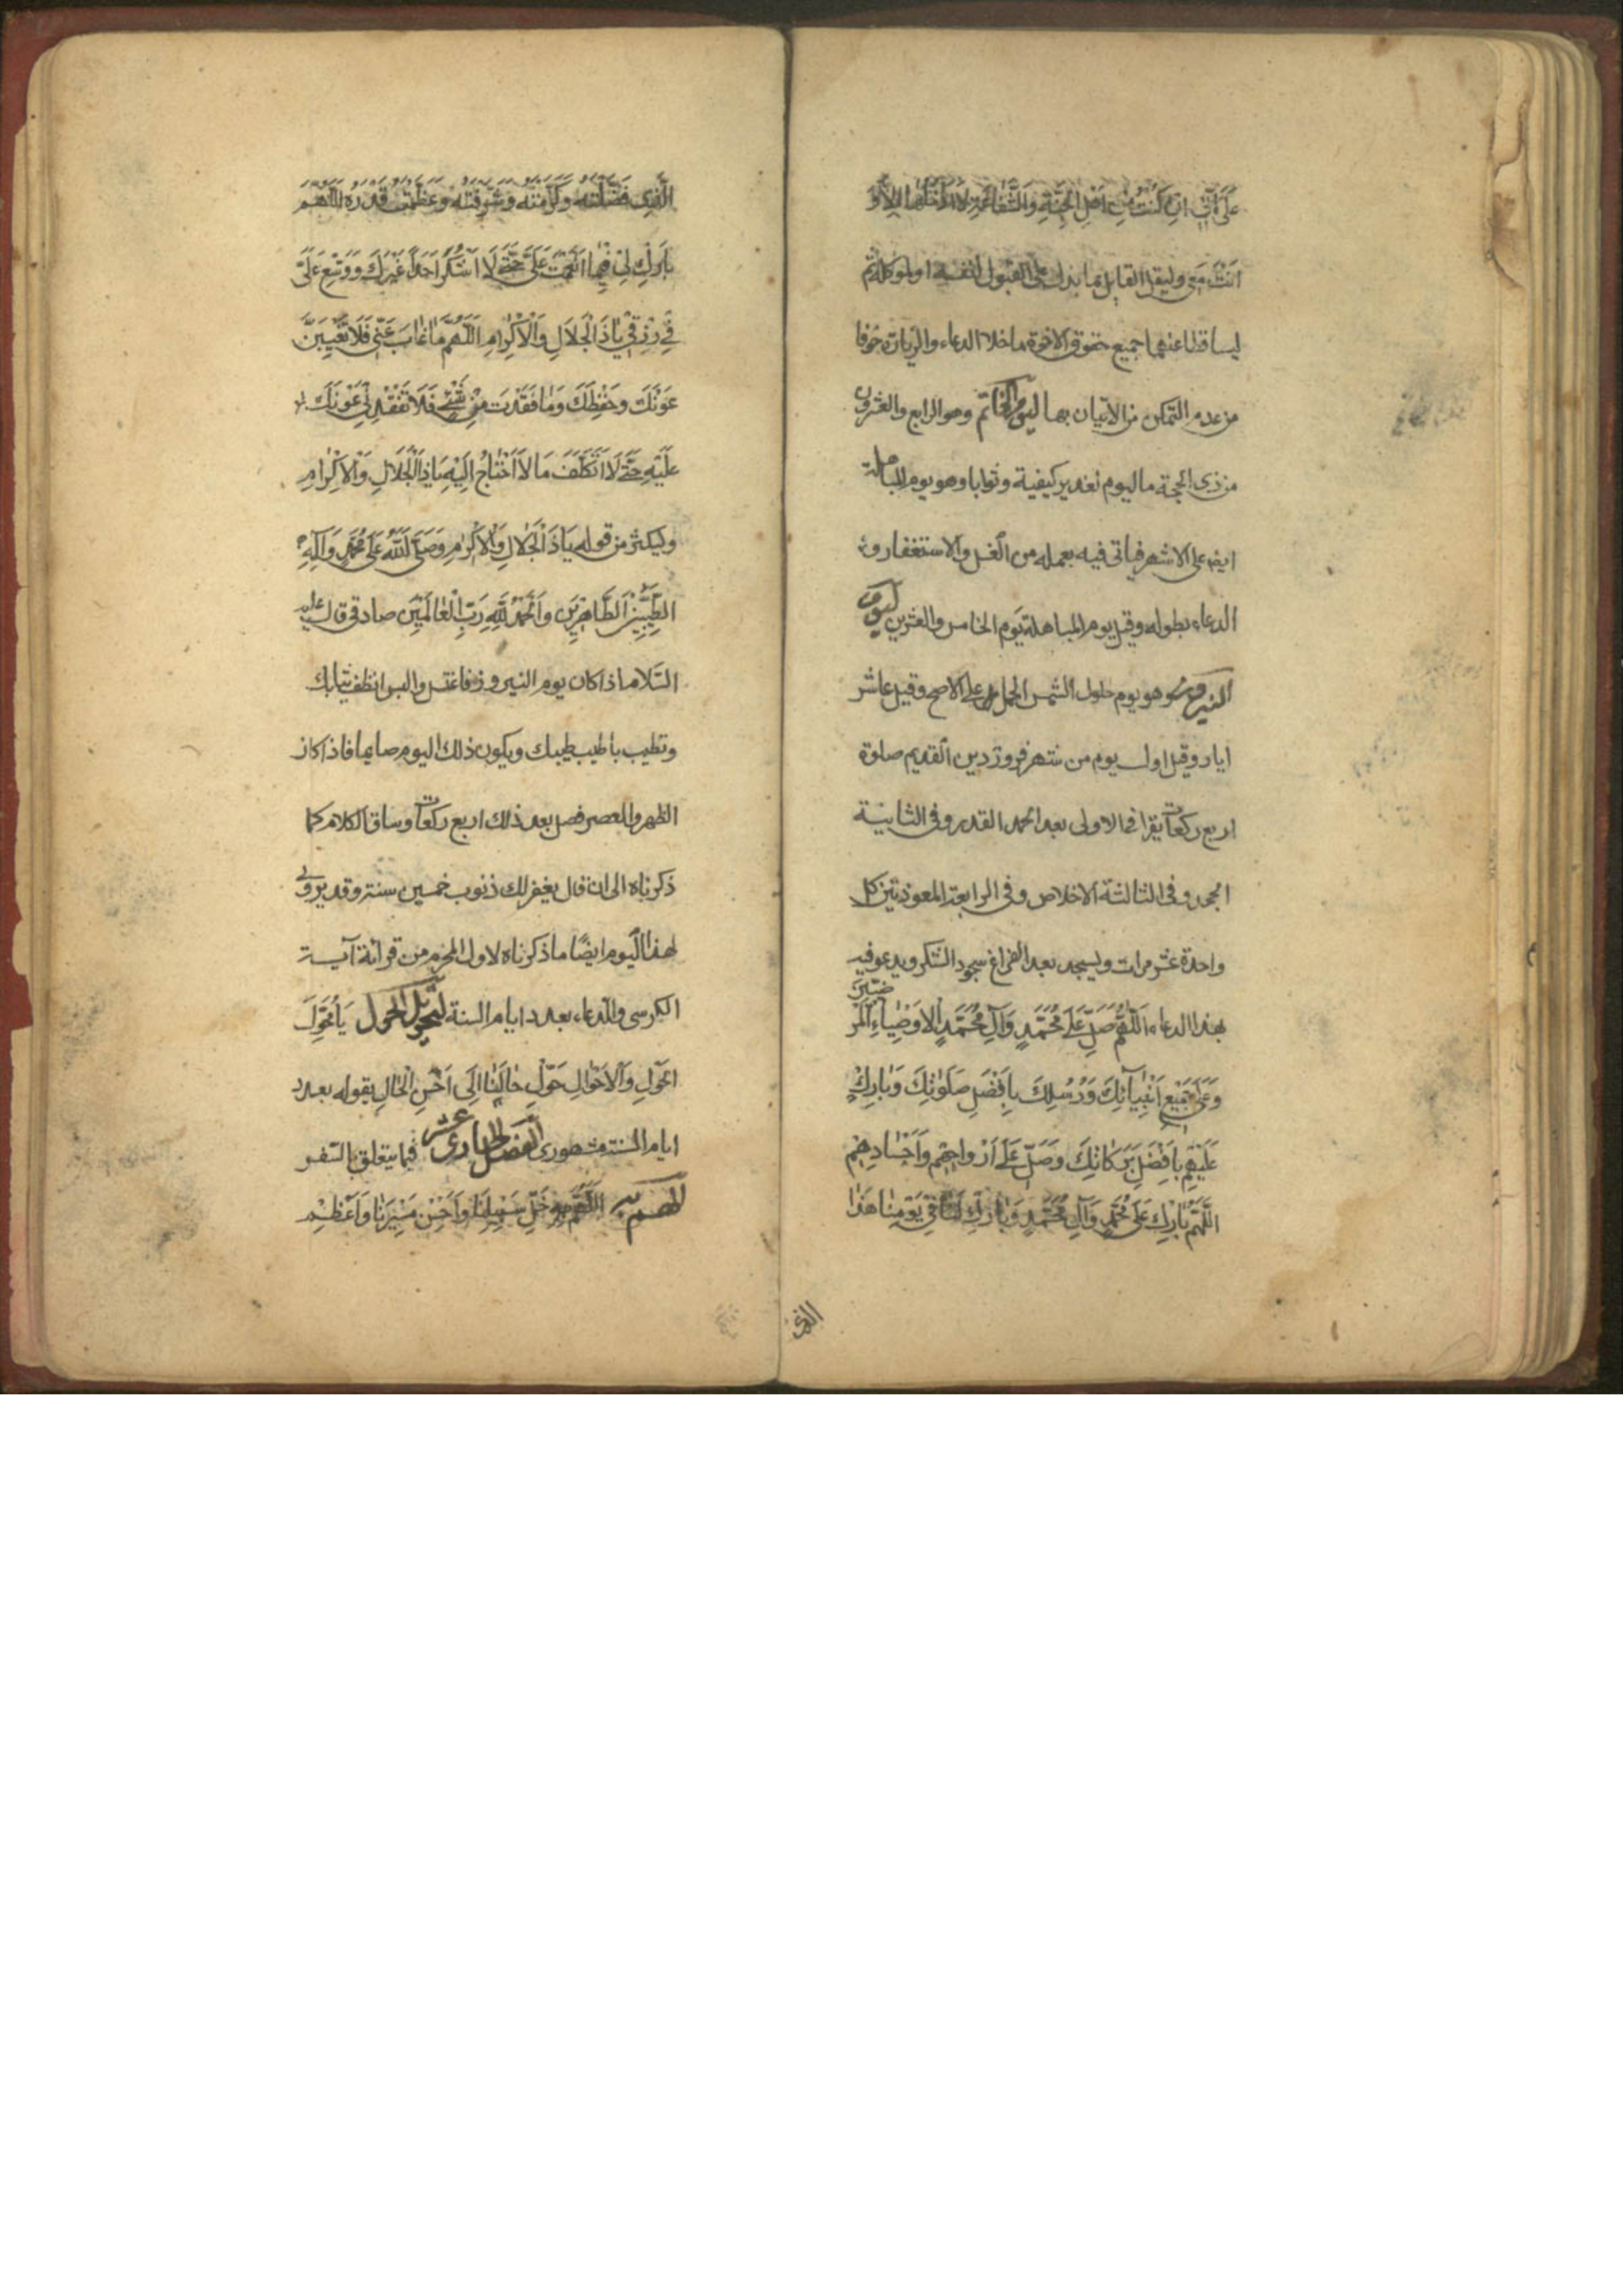 عَلَىَّ اَنّى اِنْ كُنْتُ مِنْ اَهْلِ الْجَنَّةِ وَالشَّفَاعَةِ لَا اَدْخُلُهَا اِلّا وَ
اَنْتَ مَعى وليقل القابل ما يدل على القبول لنفسه او لموكله ثم
ليساقطا عنهما جميع حقوق الاخوة ما خلا الدعاء والزيارة خوفا
من عدم التمكن من الاتيان بها ليوم الخاتم وهو الرابع والعشرون
من ذى الحجة ما ليوم الغدير كيفية وثوابا وهو يوم المباهلة
ايضا على الاشهر فياتى فيه بعمله من الغسل والاستغفار و
الدعاء بطوله وقيل يوم المباهلة يوم الخامس والعشرين ليوم
النيروز وهو يوم حلول الشمس الحمل على الاصح وقيل عاشر
ايار وقيل اول يوم من شهر فروردين القديم صلوة
اربع ركعات يقرا فى الاولى بعد الحمد القدر وفى الثانية
الجحد وفى الثالثة الاخلاص وفى الرابعة المعوذتين كل
واحدة عشر مرات ويسجد بعد الفراغ سجود الشكر ويدعو فيه
بهذا الدعاء اَللّهُمَّ صَلِّ عَلى مُحَمَّدٍ وَآلِ مُحَمَّدٍ الْاَوْصِيَاءِ الْمَرْضِيّينَ
وَعَلى جَميعِ اَنْبِيَآئِكَ وَرُسُلِكَ بِاَفْضَلِ صَلَوَاتِكَ وَبَارِكْ
عَلَيْهِمْ بِاَفْضَلِ بَرَكَاتِكَ وَصَلِّ عَلى اَرْوَاحِهِمْ وَاَجْسَادِهِمْ
اَللّهُمَّ بَارِكْ عَلى مُحَمَّدٍ وَآلِ مُحَمَّدٍ وَبَارِكْ لَنَا فى يَوْمِنَا هذَا
الذى
الَّذى فَضَّلْتَهُ وَكَرَّمْتَهُ وَشَرَّفْتَهُ وَعَظَّمْتَ قَدْرَهُ اَللّهُمَّ
بَارِكْ لى فيمَا اَنْعَمْتَ عَلَىَّ حَتّى لَا اَشْكُرَ اَحَدًا غَيْرَكَ وَوَسِّعْ عَلَىَّ
فى رِزْقى يَا ذَا الْجَلَالِ وَالْاِكْرَامِ اَللّهُمَّ مَا غَابَ عَنّى فَلَا تُغَيِّبَنَّ
عَوْنَكَ وَحِفْظَكَ وَمَا فَقَدْتُ مِنْ شَىْءٍ فَلَا تُفْقِدْنى عَوْنَكَ
عَلَيْهِ حَتّى لَا اَتَكَلَّفَ مَا لَا اَحْتَاجُ اِلَيْهِ يَا ذَا الْجَلَالِ وَالْاِكْرَامِ
وليكثر من قوله يَا ذَا الْجَلَالِ وَالْاِكْرَامِ وَصَلَّى اللّهُ عَلى مُحَمَّدٍ وَآلِهِ
الطَّيِّبينَ الطَّاهِرينَ وَالْحَمْدُ لِلّهِ رَبِّ الْعَالَمينَ صادقى قال عليه
السّلام اذا كان يوم النيروز فاغتسل والبس انظف ثيابك
وتطيب باطيب طيبك ويكون ذلك اليوم صايما فاذا كان
الظهر والعصر فصل بعد ذلك اربع ركعات وساق الكلام كما
ذكرناه الى ان قال يغفر لك ذنوب خمسين سنة وقد يروى
لهذا اليوم ايضًا ما ذكرناه لاول المحرم من قرائة آية
الكرسى والدعاء بعدد ايام السنة لتحويل الحول يَا مُحَوِّلَ
الْحَوْلِ وَالْاَحْوَالِ حَوِّلْ حَالَنَا اِلى اَحْسَنِ الْحَالِ يقوله بعدد
ايام السنة مشهورى الفصل الحادى عشر فيما يتعلق بالسّفر
اَللّهُمَّ خَلِّ سَبيلَنَا وَاَحْسِنْ مَسيرَنَا وَاَعْظِمْ